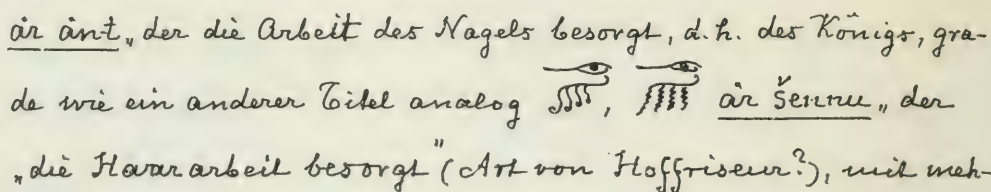 ȧr ȧnt „der die Arbeit des Nagels besorgt, d.h. des Königs, gra-
de wie ein anderer Titel analog , ȧr šennu „der
„die Haararbeit besorgt" (Art von Hoffriseur?), mit meh-